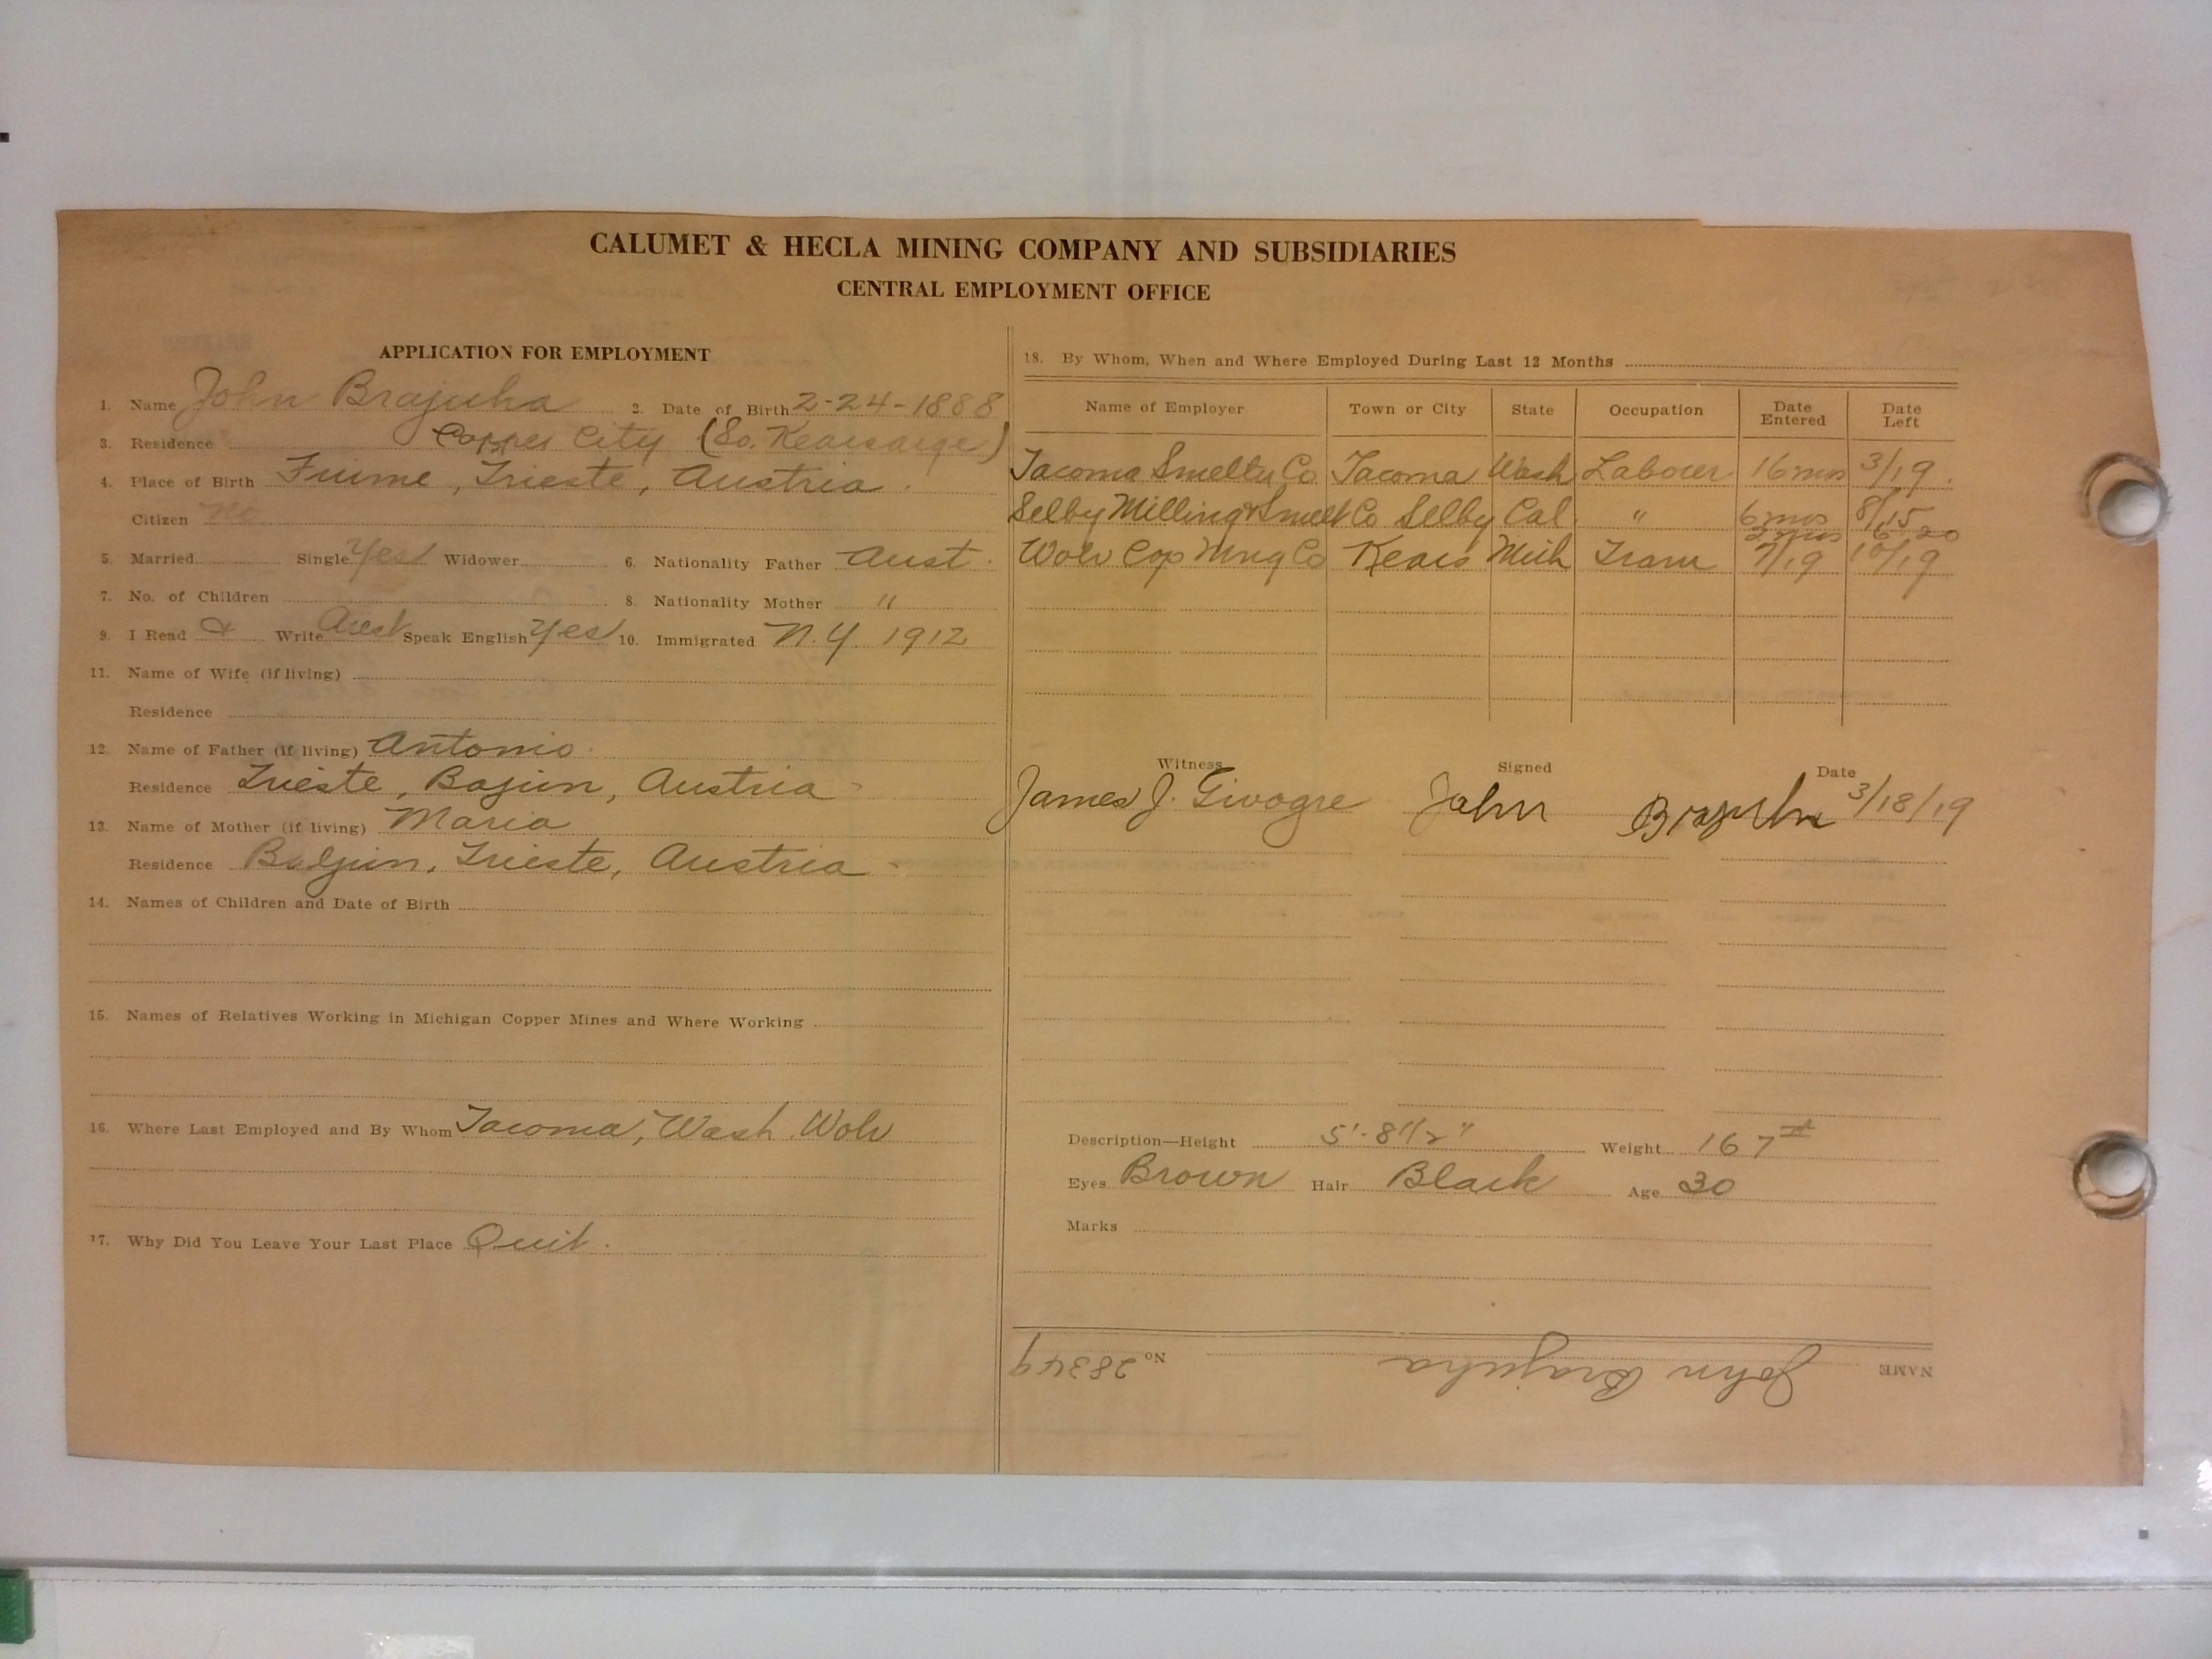 CALUMET & HECLA MINING COMPANY AND SUBSIDIARIES
CENTRAL EMPLOYMENT OFFICE
APPLICATION FOR EMPLOYMENT
1. Name John Brajuha 2. Date of Birth 2-24-1888
3. Residence Copper City (So. Kearsarge)
4. Place of Birth Fiume, Trieste, Austria.
Citizen No
5. Married Single Yes Widower 6. Nationality Father Aust.
7. No. of Children 8. Nationality Mother "
9. I Read & Write Aust Speak English Yes 10. Immigrated N.Y. 1912
11. Name of Wife (if living)
Residence
12. Name of Father (if living) Antonio.
Residence Trieste, Austria
13. Name of Mother (if living) Maria
Residence Trieste, Austria
14. Names of Children and Date of Birth
15. Names of Relatives Working in Michigan Copper Mines and Where Working
16. Where Last Employed and By Whom Tacoma, Wash. Wolv
17. Why Did You Leave Your Last Place Quit.
18. By Whom, When and Where Employed During Last 12 Months
Name of Employer Town or City State Occupation Date Entered Date Left
Tacoma Smelty Co Tacoma Wash Labourer 16 mos 3/19.
Selby Milling & Smelt Co Selby Cal. " 6 mos 8/15
2 mos 6-20
Wolv Cop Mng Co Kears Mich Tram 7/19 10/19
Witness Signed Date
James J. Givogre John 3/18/19
Description—Height 5'-8 1/2" Weight 167#
Eyes Brown Hair Black Age 30
Marks
NAME John Brajuha No 28349